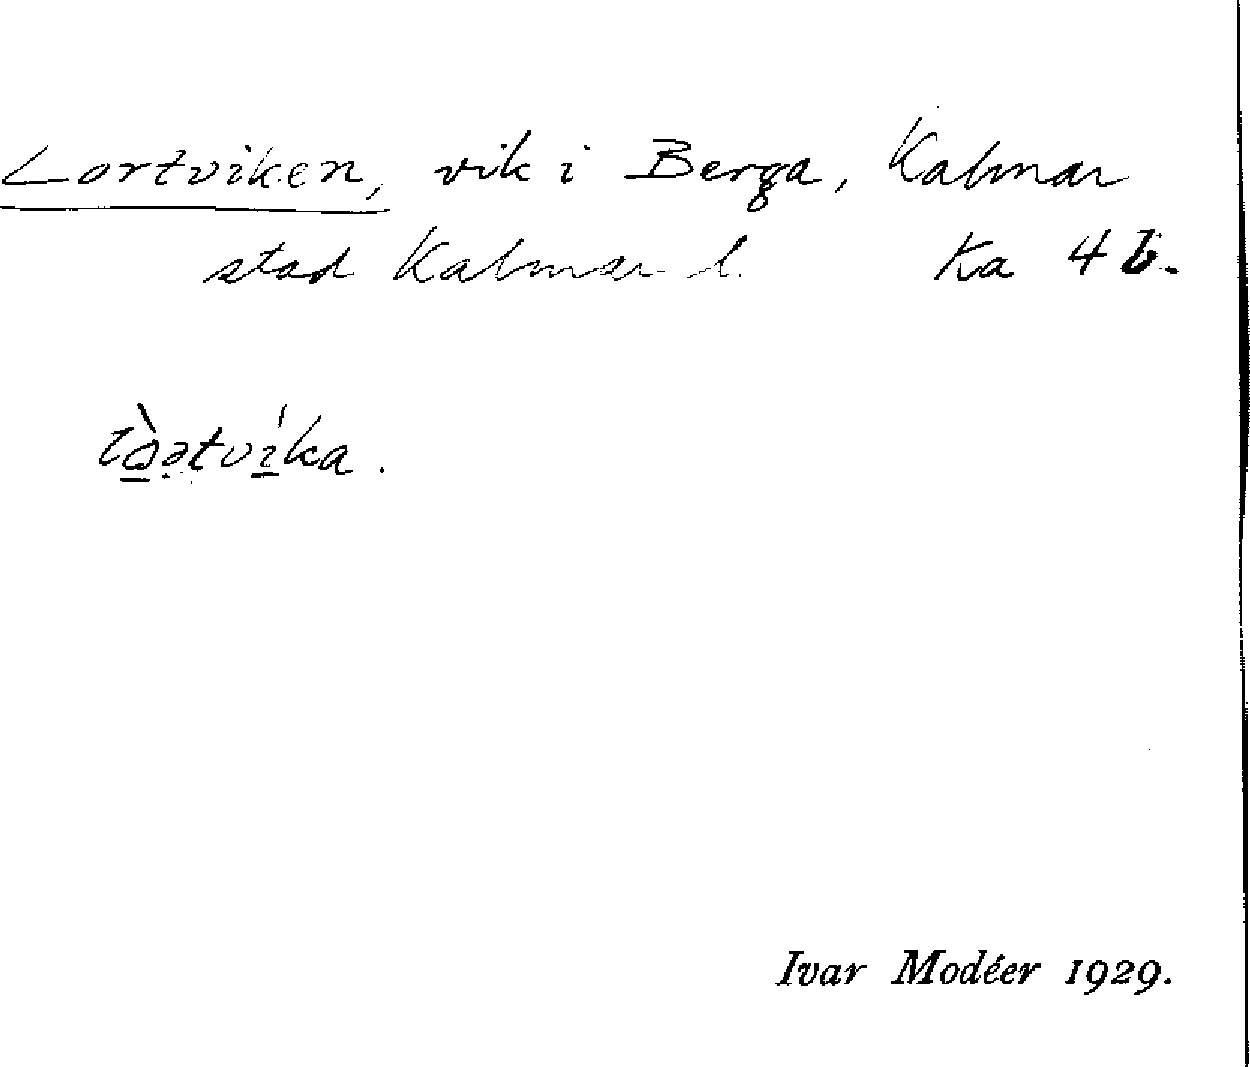 Lortviken, vik i Berga, Kalmar
stad Kalmar l. Ka 4 b.
lɔ̀ətvíka.
Ivar Modéer 1929.